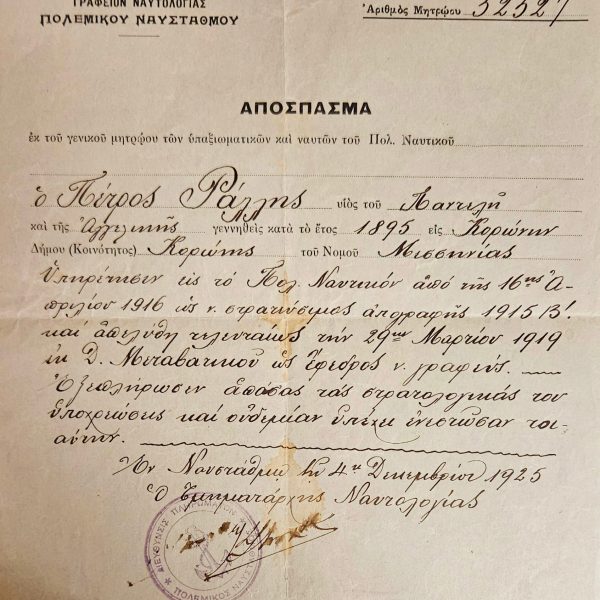 ΓΡΑΦΕΙΟΝ ΝΑΥΤΟΛΟΓΙΑΣ
ΠΟΛΕΜΙΚΟΥ ΝΑΥΣΤΑΘΜΟΥ
Ἀριθμὸς Μητρῴου 52527
ΑΠΟΣΠΑΣΜΑ
ἐκ τοῦ γενικοῦ μητρῴου τῶν ὑπαξιωματικῶν καὶ ναυτῶν τοῦ Πολ. Ναυτικοῦ
ὁ Πέτρος Ράλλης υἱὸς τοῦ Παντελῆ
καὶ τῆς Ἀγγελικῆς γεννηθεὶς κατὰ τὸ ἔτος 1895 εἰς Κορώνην
Δήμου (Κοινότητος) Κορώνης τοῦ Νομοῦ Μεσσηνίας
Ὑπηρέτησεν εἰς τὸ Πολ. Ναυτικόν ἀπό τῆς 16ης Ἀ-
πριλίου 1916 ὡς ν. στρατεύσιμος ἀπογραφῆς 1915 Β!
καὶ ἀπελύθη τελευταίως τὴν 29ην Μαρτίου 1919
ἐκ Δ. Μεταβατικοῦ ὡς ἔφεδρος ν. γραφεύς.
Ἐξεπλήρωσεν ἁπάσας τάς στρατολογικάς του
ὑποχρεώσεις καὶ οὐδεμίαν ὑπέχει ἐνεστῶσαν τοι-
αύτην.
Ἐν Ναυστάθμῳ τῇ 4ῃ Δεκεμβρίου 1925
Ὁ Τμηματάρχης Ναυτολογίας
ΔΙΕΥΘΥΝΣΙΣ ΠΛΗΡΩΜΑΤΩΝ
ΠΟΛΕΜΙΚΟΣ ΝΑΥΣΤΑΘΜΟΣ